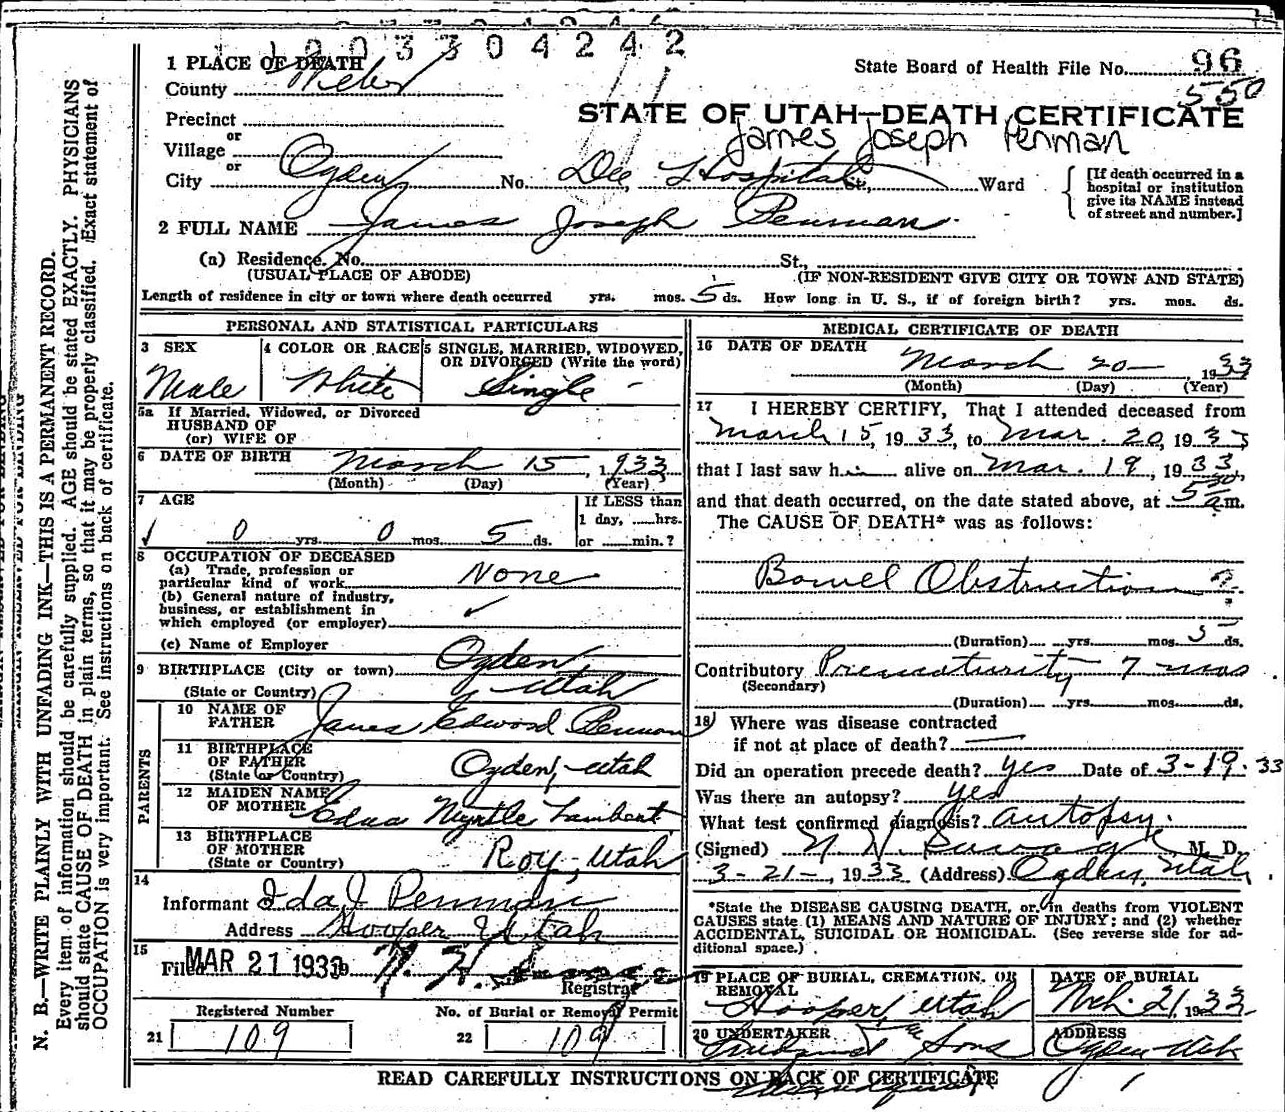 1003304242
1 PLACE OF DEATH
County Weber
State Board of Health File No. 96
550
Precinct
STATE OF UTAH—DEATH CERTIFICATE
James Joseph Penman
or
Village
or
City Ogden No. Dee Hospital St., Ward
[If death occurred in a hospital or institution give its NAME instead of street and number.]
2 FULL NAME James Joseph Penman
(a) Residence. No. St.,
(USUAL PLACE OF ABODE) (IF NON-RESIDENT GIVE CITY OR TOWN AND STATE)
Length of residence in city or town where death occurred yrs. mos. 5 ds. How long in U. S., if of foreign birth? yrs. mos. ds.
PERSONAL AND STATISTICAL PARTICULARS
3 SEX 4 COLOR OR RACE 5 SINGLE, MARRIED, WIDOWED, OR DIVORCED (Write the word)
Male White Single
5a If Married, Widowed, or Divorced
HUSBAND OF
(or) WIFE OF
6 DATE OF BIRTH March 15, 1933
(Month) (Day) (Year)
7 AGE
If LESS than
1 day, hrs.
or min.?
0 yrs 0 mos. 5 ds.
8 OCCUPATION OF DECEASED
(a) Trade, profession or
particular kind of work None
(b) General nature of industry,
business, or establishment in
which employed (or employer)
(c) Name of Employer
9 BIRTHPLACE (City or town) Ogden,
(State or Country) Utah
PARENTS
10 NAME OF
FATHER James Edward Penman
11 BIRTHPLACE
OF FATHER
(State or Country) Ogden, Utah
12 MAIDEN NAME
OF MOTHER Edna Myrtle Lambert
13 BIRTHPLACE
OF MOTHER
(State or Country) Roy, Utah
14
Informant Ida J Penman
Address Hooper Utah
15
Filed MAR 21 1933 19
Registrar
Registered Number No. of Burial or Removal Permit
21 109 22 109
MEDICAL CERTIFICATE OF DEATH
16 DATE OF DEATH March 20 1933
(Month) (Day) (Year)
17 I HEREBY CERTIFY, That I attended deceased from
March 15, 1933, to Mar. 20, 1933
that I last saw h alive on Mar. 19, 1933,
and that death occurred, on the date stated above, at 5 30 a.m.
The CAUSE OF DEATH* was as follows:
Bowel Obstruction ?
(Duration) yrs. mos. 5 ds.
Contributory Prematurity 7 mos
(Secondary)
(Duration) yrs. mos. ds.
18 Where was disease contracted
if not at place of death?
Did an operation precede death? yes Date of 3-19-33
Was there an autopsy? yes
What test confirmed diagnosis? autopsy.
(Signed) M. D.
3-21-, 1933 (Address) Ogden, Utah.
*State the DISEASE CAUSING DEATH, or, in deaths from VIOLENT
CAUSES state (1) MEANS AND NATURE OF INJURY; and (2) whether
ACCIDENTAL, SUICIDAL OR HOMICIDAL. (See reverse side for ad-
ditional space.)
19 PLACE OF BURIAL, CREMATION, OR REMOVAL DATE OF BURIAL
Hooper, Utah Mch. 21, 1933
20 UNDERTAKER ADDRESS
Sons Ogden Utah
READ CAREFULLY INSTRUCTIONS ON BACK OF CERTIFICATE
N. B.—WRITE PLAINLY WITH UNFADING INK—THIS IS A PERMANENT RECORD.
Every item of information should be carefully supplied. AGE should be stated EXACTLY. PHYSICIANS
should state CAUSE OF DEATH in plain terms, so that it may be properly classified. Exact statement of
OCCUPATION is very important. See instructions on back of certificate.